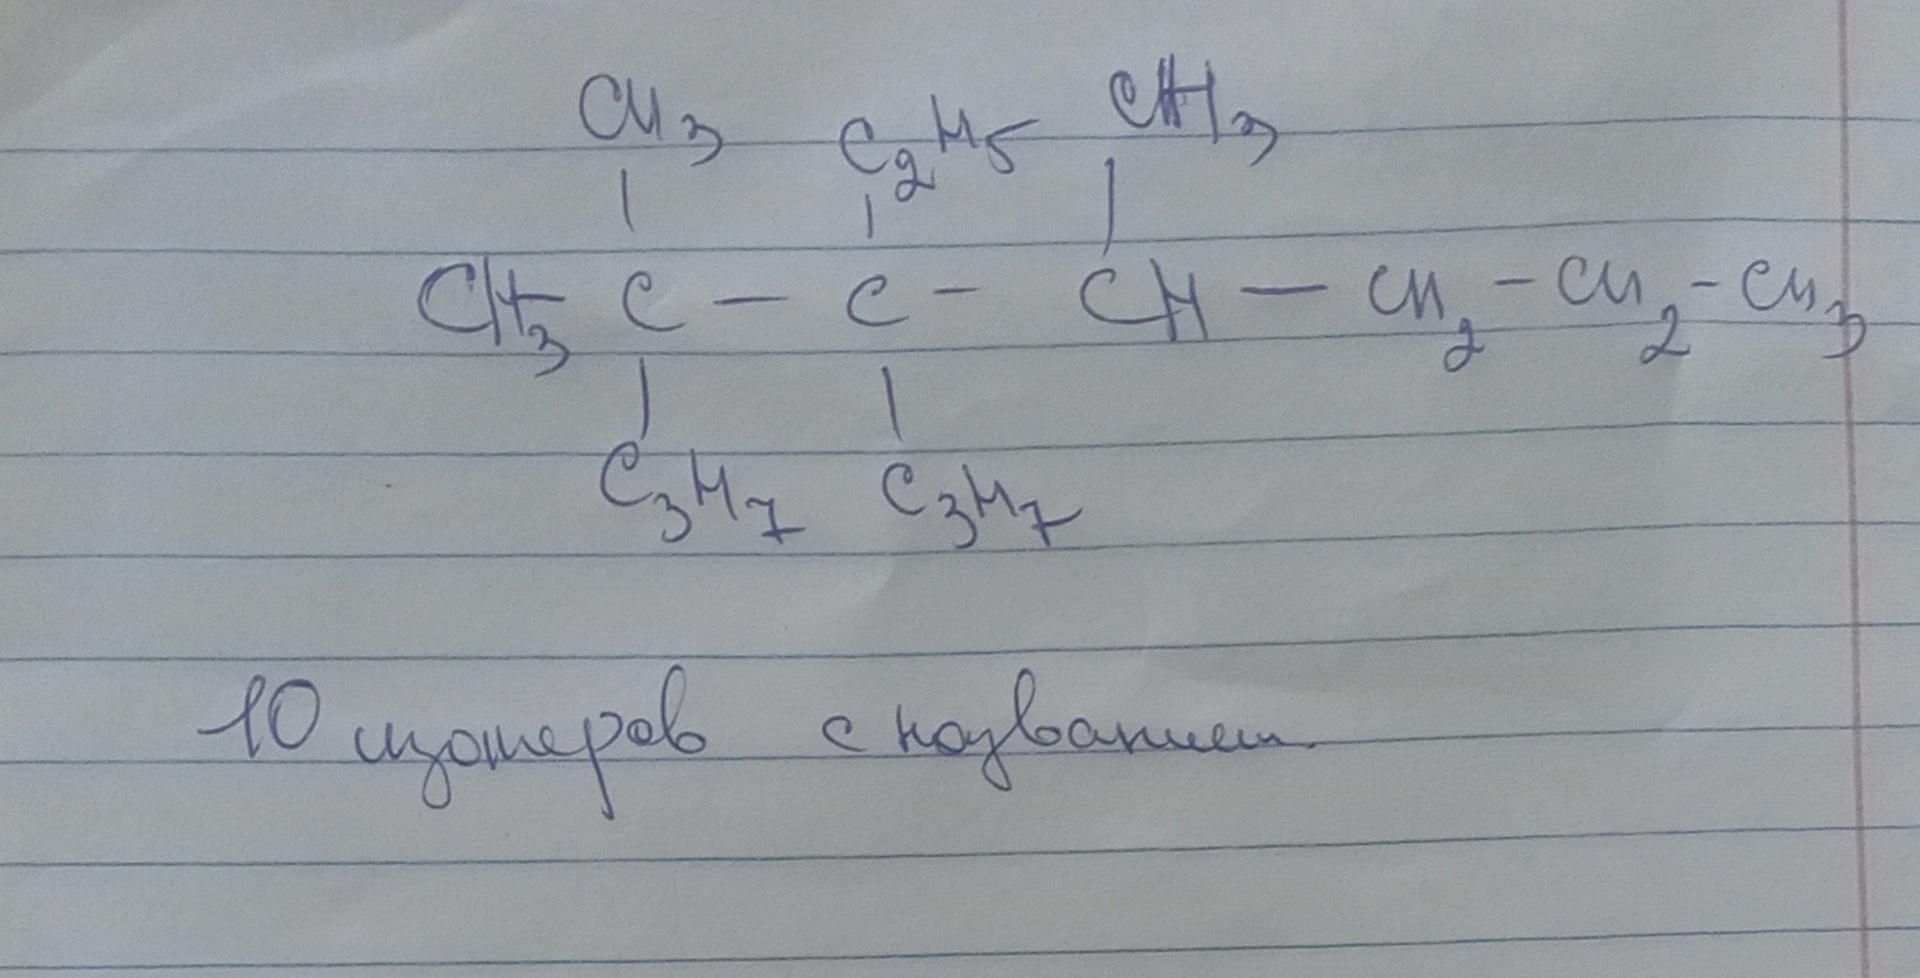 CH3 C2H5 CH3
CH3 C - C - CH - CH2 - CH2 - CH3
C3H7 C3H7
10 изомеров с названием.